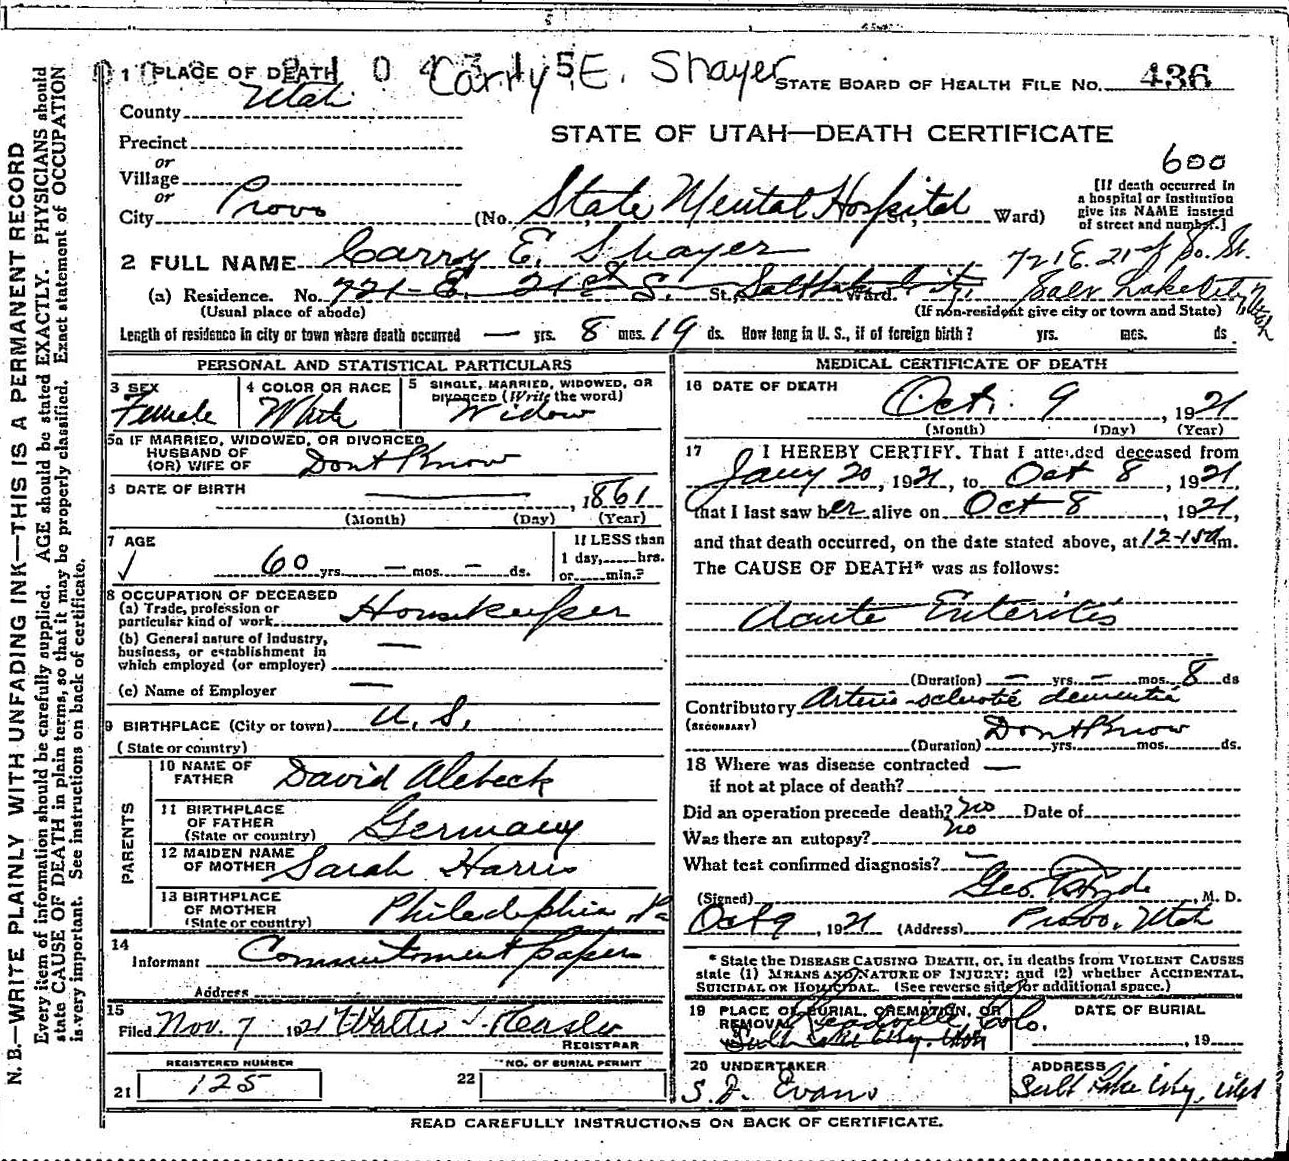 Carry E. Shayer
1 PLACE OF DEATH
STATE BOARD OF HEALTH FILE No. 436
County Utah
STATE OF UTAH—DEATH CERTIFICATE
Precinct
or
Village
or
City Provo (No. State Mental Hospital St., Ward)
600
[If death occurred in a hospital or institution give its NAME instead of street and number.]
2 FULL NAME Carry E. Shayer
721 E. 21st So. St.
Salt Lake City, Utah
(a) Residence. No. 721 E. 21st S. St., Salt Lake City Ward.
(Usual place of abode) (If non-resident give city or town and State)
Length of residence in city or town where death occurred — yrs. 8 mos. 19 ds. How long in U. S., if of foreign birth? yrs. mos. ds.
PERSONAL AND STATISTICAL PARTICULARS
3 SEX Female
4 COLOR OR RACE White
5 SINGLE, MARRIED, WIDOWED, OR DIVORCED (Write the word) Widow
5a IF MARRIED, WIDOWED, OR DIVORCED
HUSBAND OF
(OR) WIFE OF Dont Know
6 DATE OF BIRTH — , 1861
(Month) (Day) (Year)
7 AGE
60 yrs. — mos. — ds.
If LESS than
1 day, hrs.
or min.?
8 OCCUPATION OF DECEASED
(a) Trade, profession or
particular kind of work Housekeeper
(b) General nature of industry,
business, or establishment in
which employed (or employer) —
(c) Name of Employer —
9 BIRTHPLACE (City or town) U. S.
(State or country)
PARENTS
10 NAME OF
FATHER David Alebeck
11 BIRTHPLACE
OF FATHER
(State or country) Germany
12 MAIDEN NAME
OF MOTHER Sarah Harris
13 BIRTHPLACE
OF MOTHER
(State or country) Philedelphia Pa
14
Informant Commitment papers
Address
15
Filed Nov. 7 1921 Walter
REGISTRAR
REGISTERED NUMBER
21 125
NO. OF BURIAL PERMIT
22
MEDICAL CERTIFICATE OF DEATH
16 DATE OF DEATH
Oct. 9 , 1921
(Month) (Day) (Year)
17 I HEREBY CERTIFY. That I attended deceased from
Jany 20, 1921, to Oct 8, 1921,
that I last saw her alive on Oct 8, 1921,
and that death occurred, on the date stated above, at 12-15a m.
The CAUSE OF DEATH* was as follows:
Acute Enteritis
(Duration) — yrs. — mos. 8 ds
Contributory Arterio-sclerotic dementia
(SECONDARY)
(Duration) Dont Know yrs. mos. ds.
18 Where was disease contracted —
if not at place of death?
Did an operation precede death? no Date of
Was there an autopsy? no
What test confirmed diagnosis? —
(Signed) Geo. E. Hyde, M. D.
Oct 9, 1921 (Address) Provo, Utah
* State the DISEASE CAUSING DEATH, or, in deaths from VIOLENT CAUSES
state (1) MEANS AND NATURE OF INJURY; and (2) whether ACCIDENTAL,
SUICIDAL OR HOMICIDAL. (See reverse side for additional space.)
19 PLACE OF BURIAL, CREMATION, OR
REMOVAL Leadville, Colo.
Salt Lake City, Utah
DATE OF BURIAL
, 19
20 UNDERTAKER
S. D. Evans
ADDRESS
Salt Lake City, Utah
READ CAREFULLY INSTRUCTIONS ON BACK OF CERTIFICATE.
N. B.—WRITE PLAINLY WITH UNFADING INK—THIS IS A PERMANENT RECORD
Every item of information should be carefully supplied. AGE should be stated EXACTLY. PHYSICIANS should
state CAUSE OF DEATH in plain terms, so that it may be properly classified. Exact statement of OCCUPATION
is very important. See instructions on back of certificate.